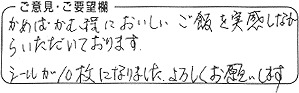 ご意見・ご要望欄
かめばかむ程においしい ご飯を実感しなが
らいただいております。
シールが10枚になりました。よろしくお願いします